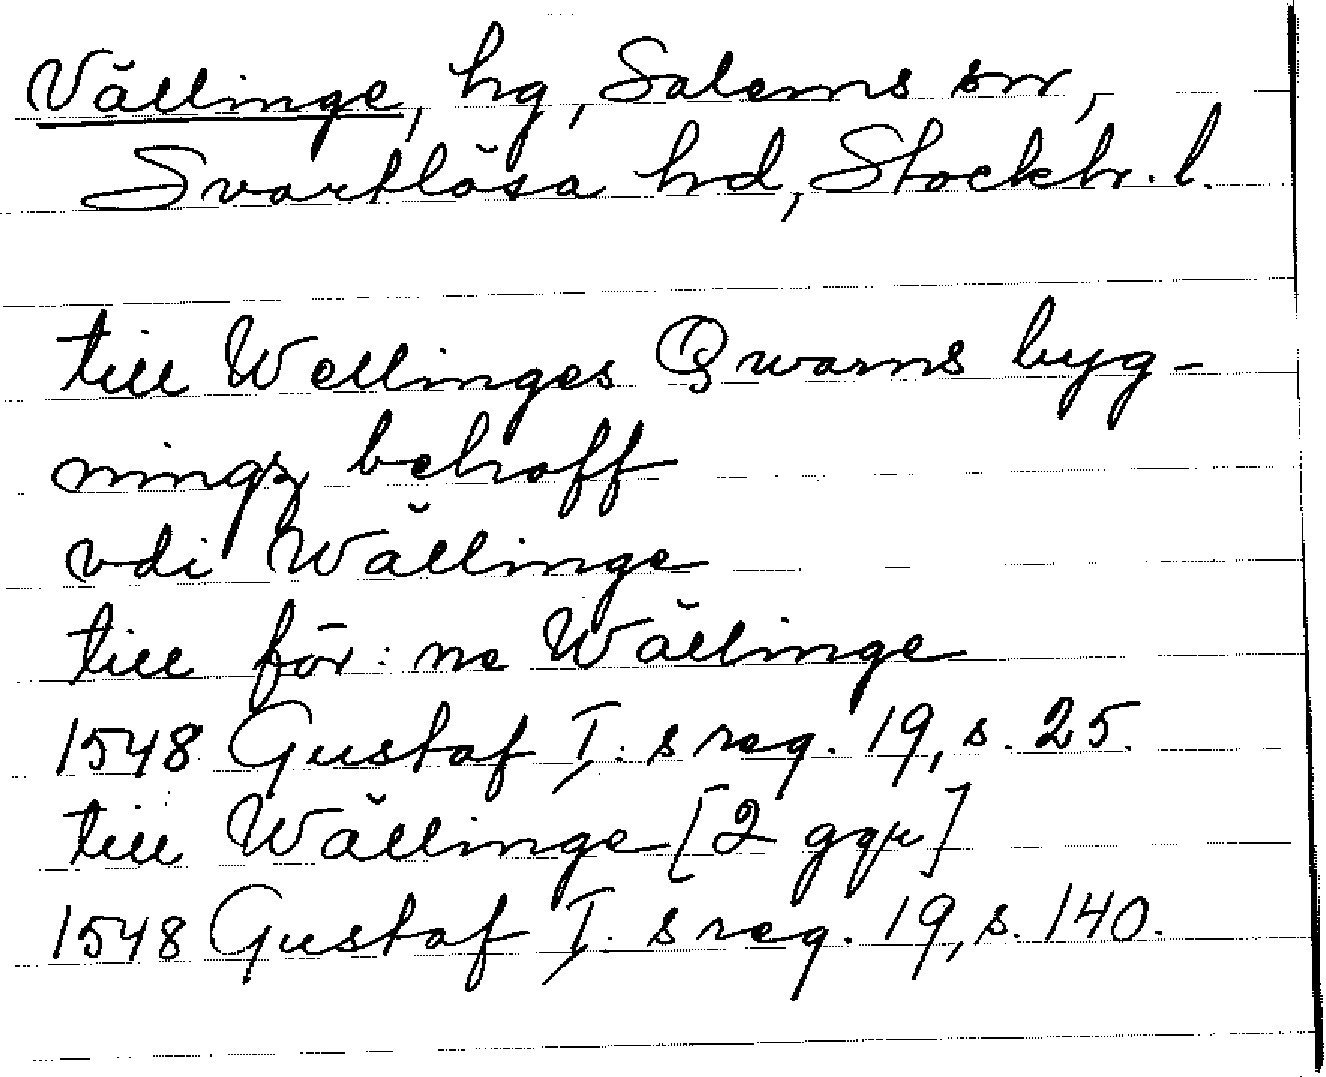 Vällinge, hg, Salems sn,
Svartlösa hd, Stockh. l.
till Wellinges Qwarns byg-
ningz behoff
vdi Wällinge
till för: ne Wällinge
1548 Gustaf I: s reg. 19, s. 25.
till Wällinge [2 ggr]
1548 Gustaf I: s reg. 19, s. 140.